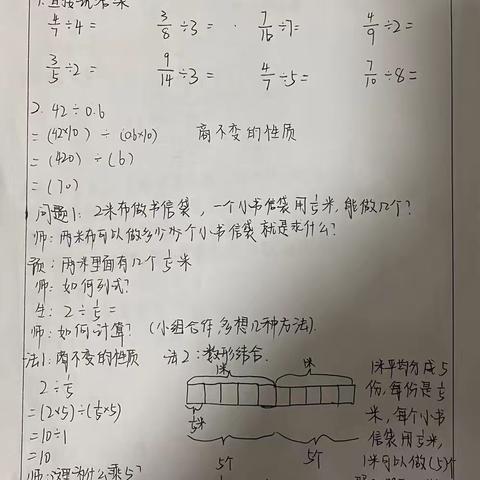 1. 直接说结果
4/7÷4= 3/8÷3= 7/16÷7= 4/9÷2=
3/5÷2= 9/14÷3= 4/7÷5= 7/10÷8=
2. 42÷0.6
=(42×10)÷(0.6×10) 商不变的性质
=(420)÷(6)
=(70)
问题1: 2米布做书信袋，一个小书信袋用1/5米，能做几个?
师: 两米布可以做多少个小书信袋就是求什么?
预: 两米里面有几个1/5米
师: 如何列式?
生: 2÷1/5=
师: 如何计算? (小组合作,多想几种方法).
法1: 商不变的性质 法2: 数形结合.
2÷1/5
=(2×5)÷(1/5×5)
=10÷1
=10
师: 这里为什么乘5?
1米 1米
1/5米
5个 5个
1米平均分成5
份,每份是1/5
米,每个小书
信袋用1/5米,
1米可以做(5)个